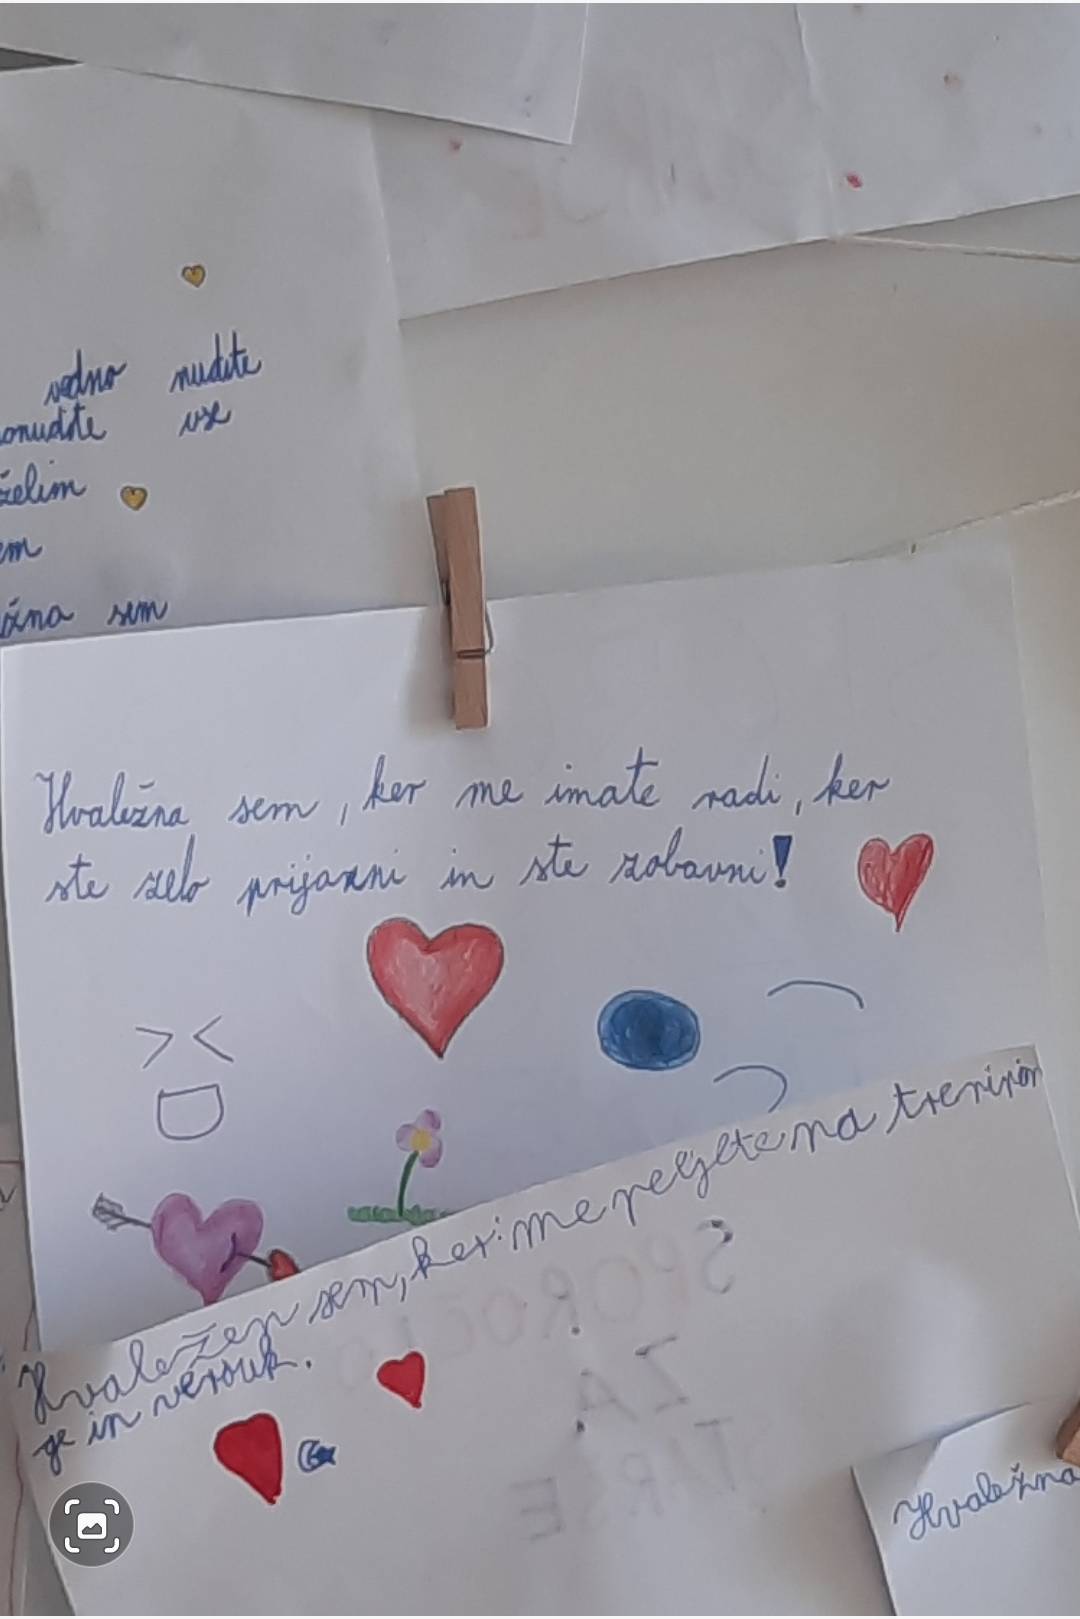 vedno nudite
ponudite vse
želim
em
žna sem
Hvaležna sem, ker me imate radi, ker
ste zelo prijazni in ste zabavni!
Hvaležen sem, ker me peljete na treninin
ge in verouk.
SPOROČILO
ZA
Hvaležna